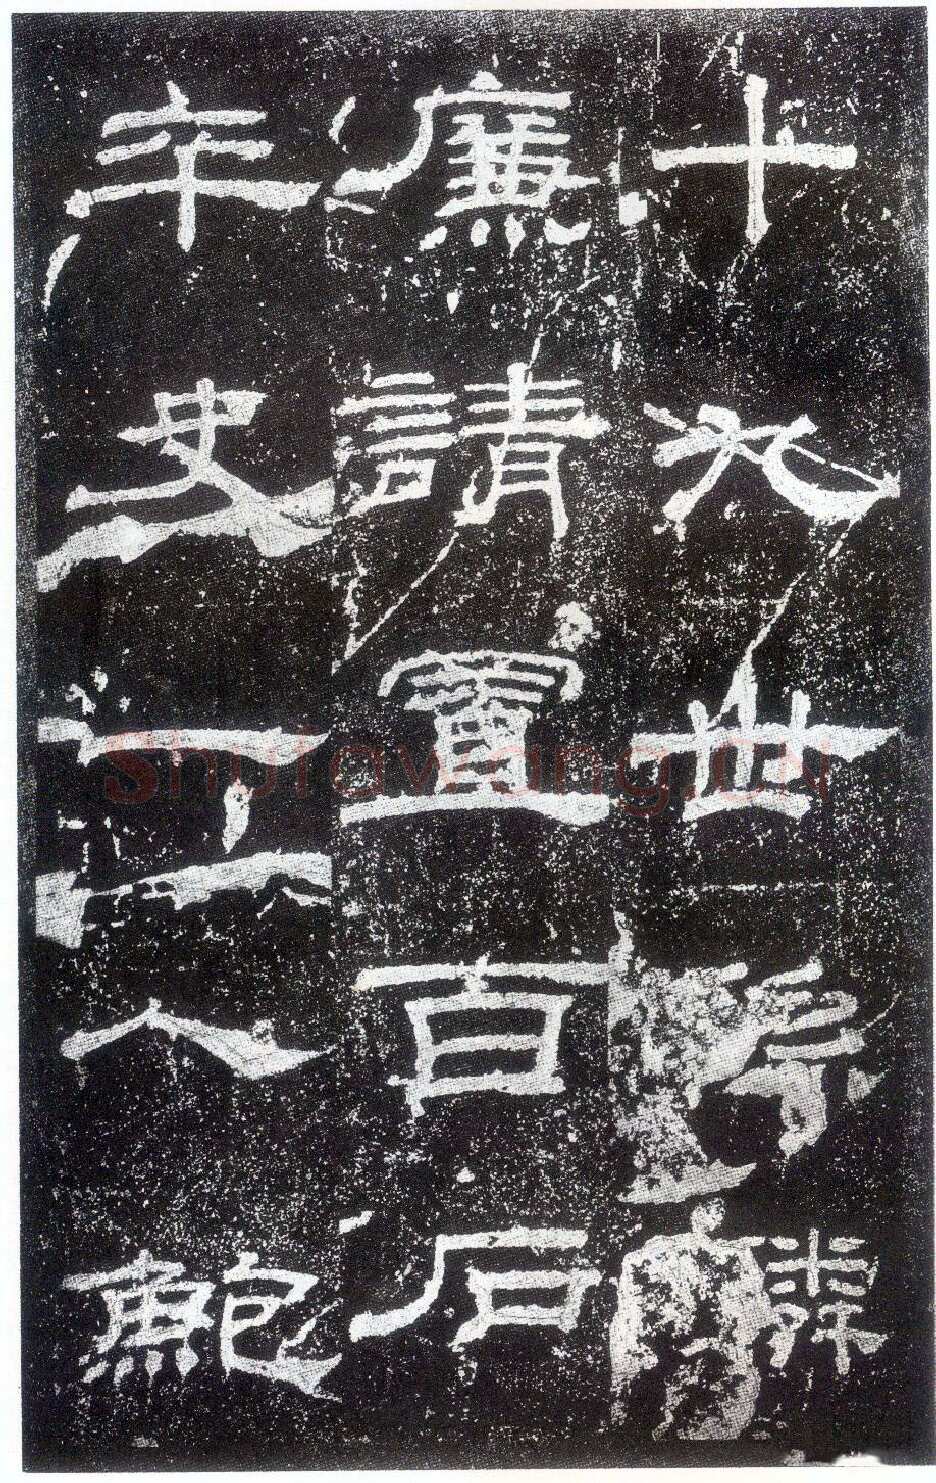 十九世孫麟
廉請置百石
卒史一人鮑
Shufawang.CN